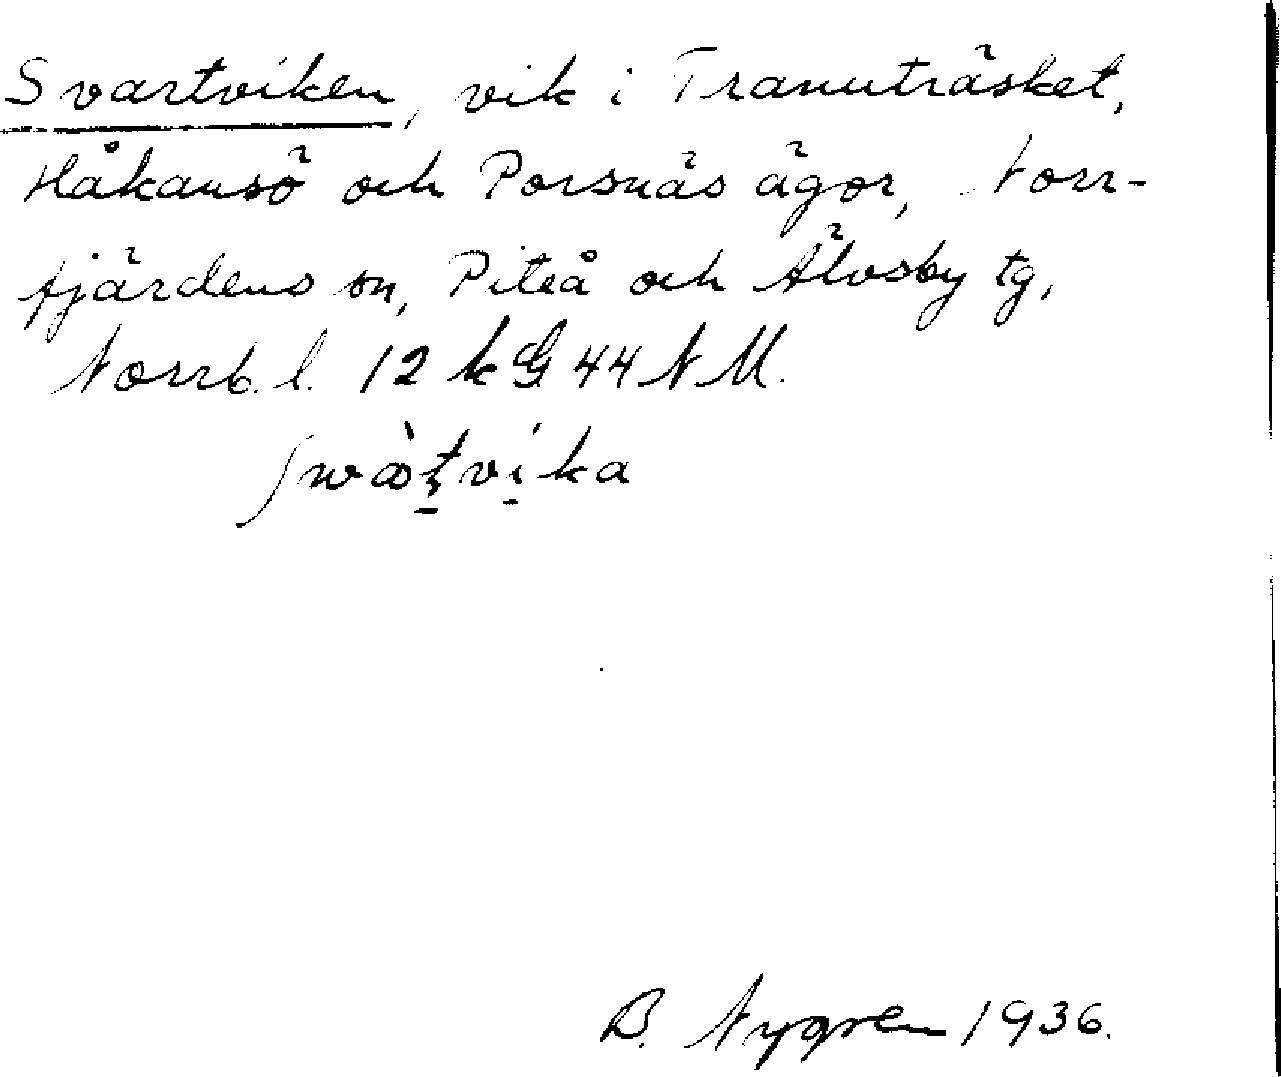 Svartviken, vik i Tranuträsket,
Håkansö och Porsnäs ägor, Norr-
fjärdens sn, Piteå och Älvsby tg,
Norrb. l. 12 k G 44 N M.
B. Nygren 1936.